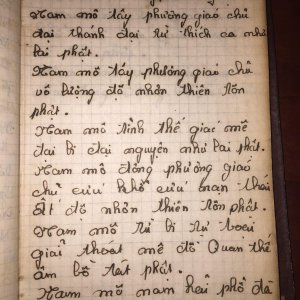 Nam mô tây phương giáo chủ
đại thánh đại từ thích ca như
lai phật.
Nam mô tây phương giáo chủ
vô lượng độ nhơn thiên tôn
phật.
Nam mô tỉnh thế giác mê
đại bi đại nguyện như lai phật.
Nam mô đông phương giáo
chủ cứu khổ cứu nạn thái
ất độ nhơn thiên tôn phật.
Nam mô từ bi tự
giải thoát mê đồ Quan thế
âm bồ tát phật.
Nam mô nam hải phổ đà